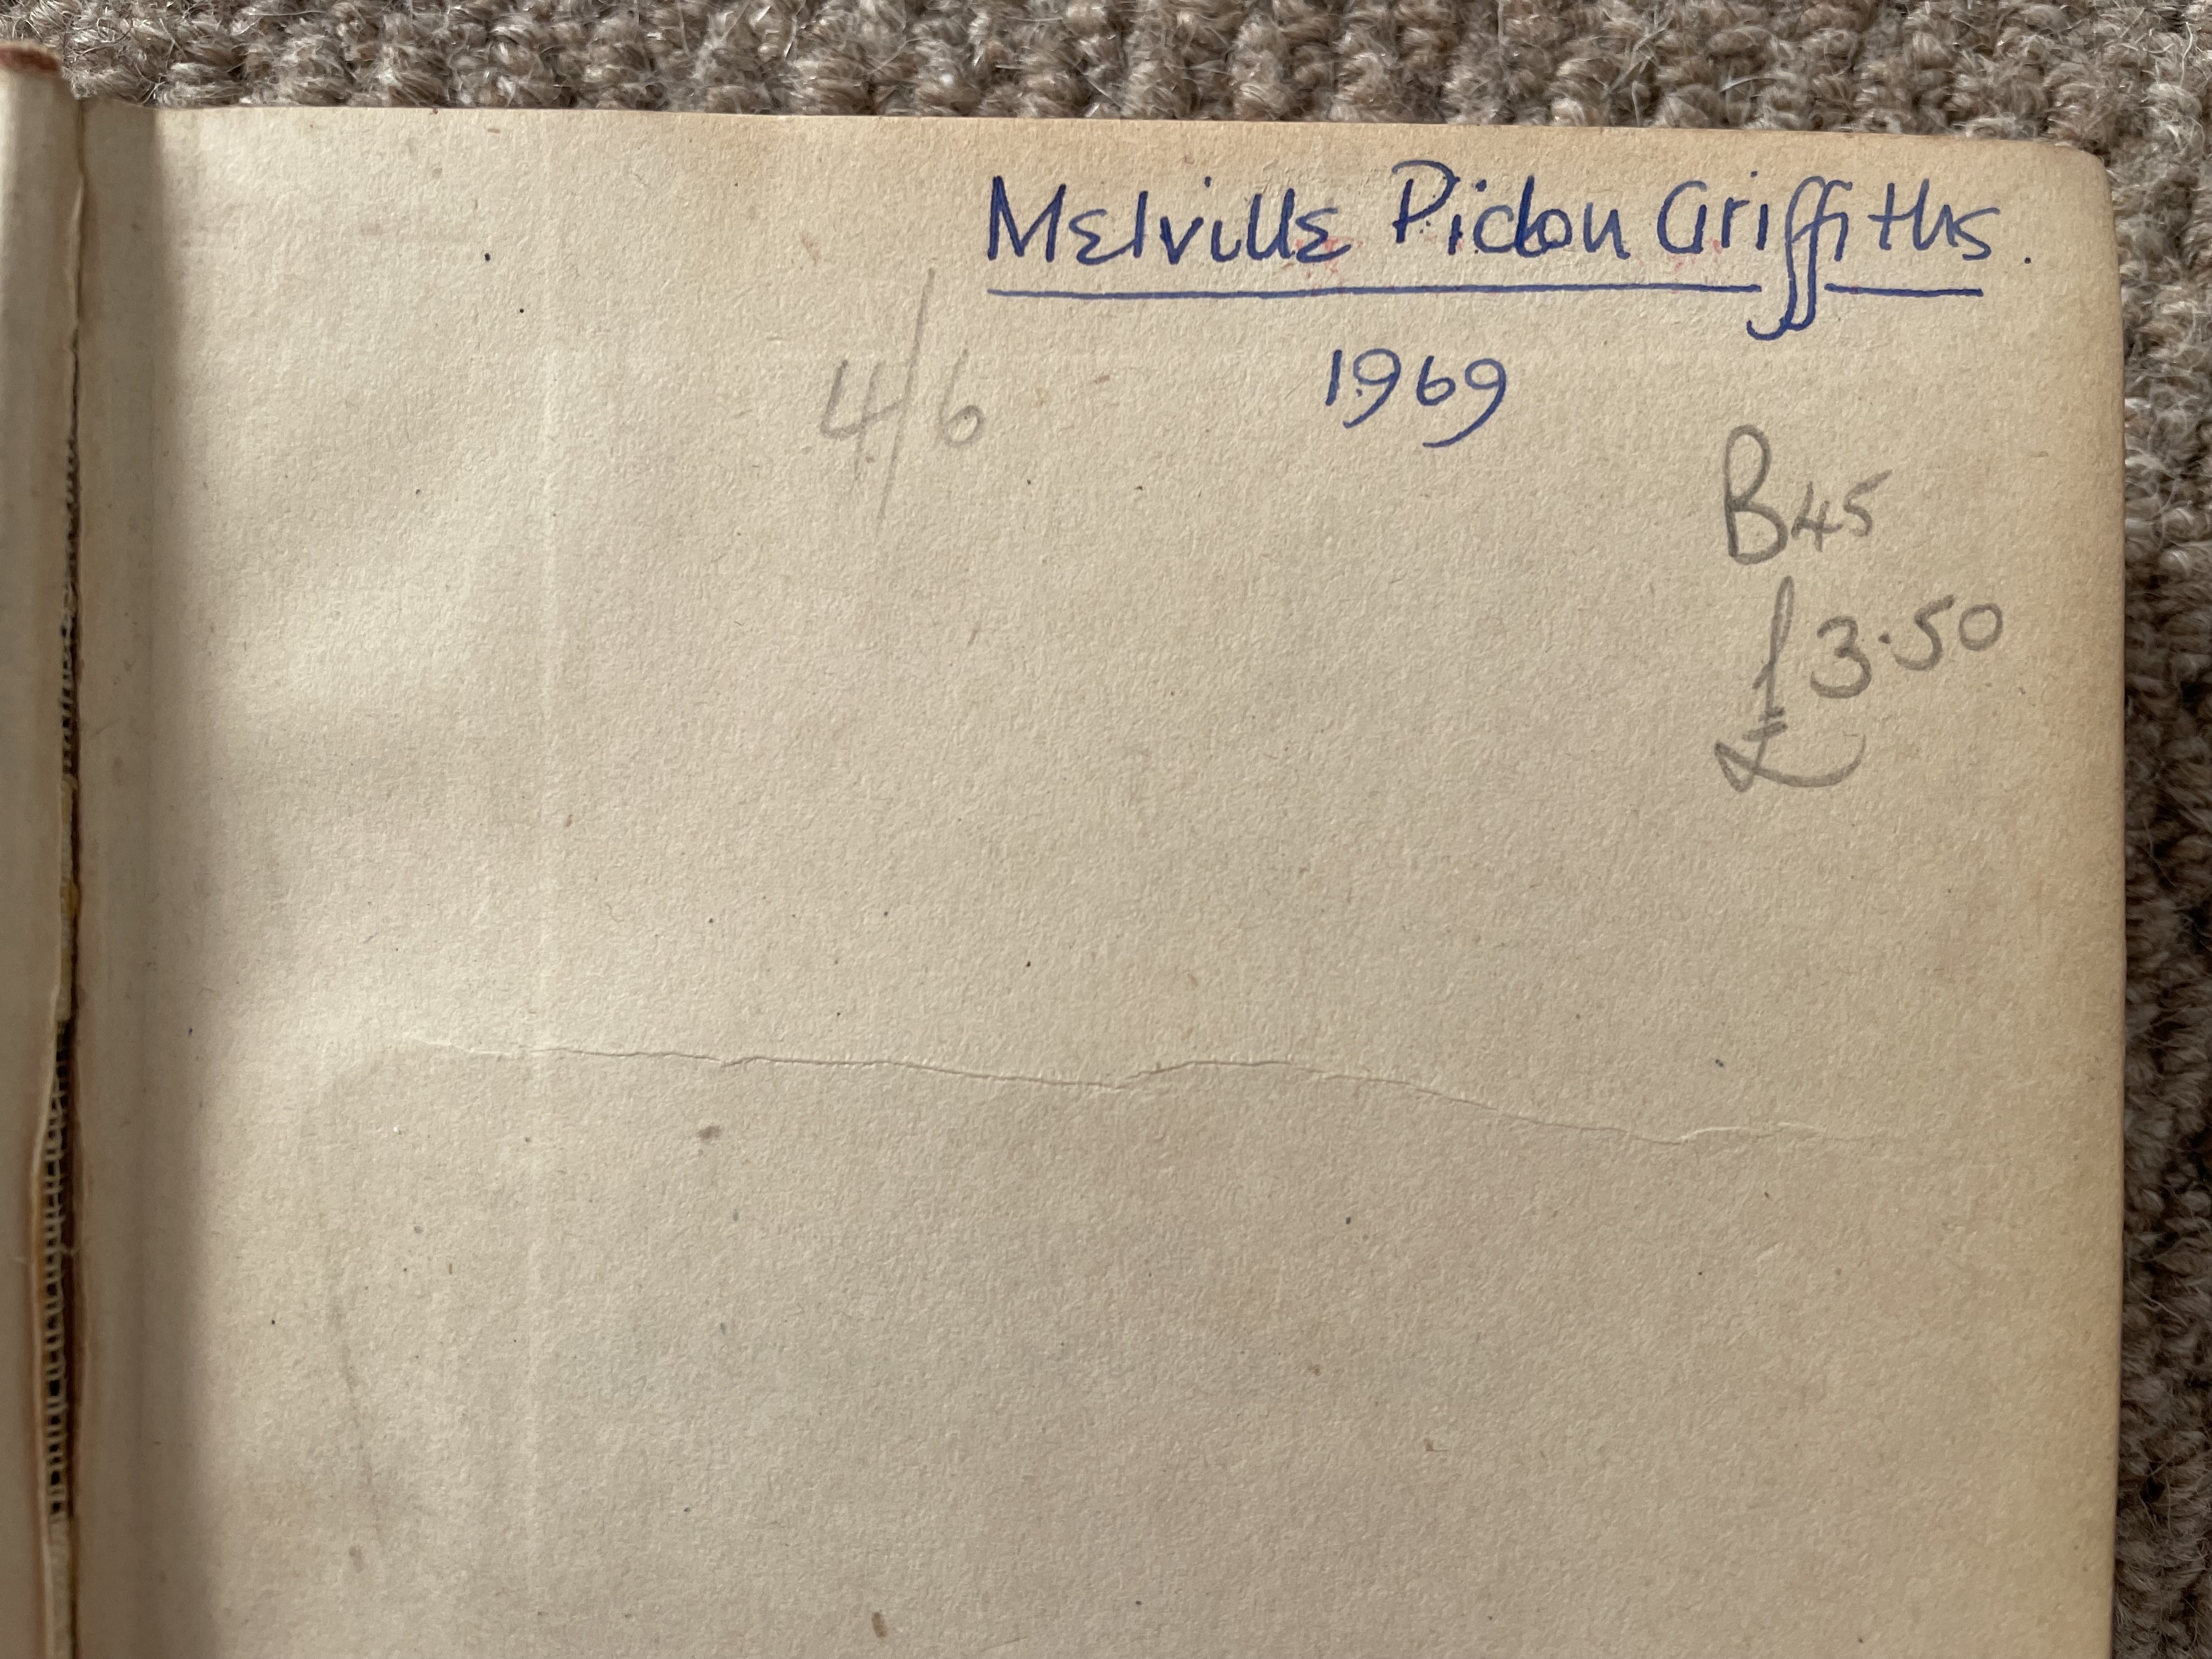 Melville Picton Griffiths.
1969
4/6
B45
£3.50